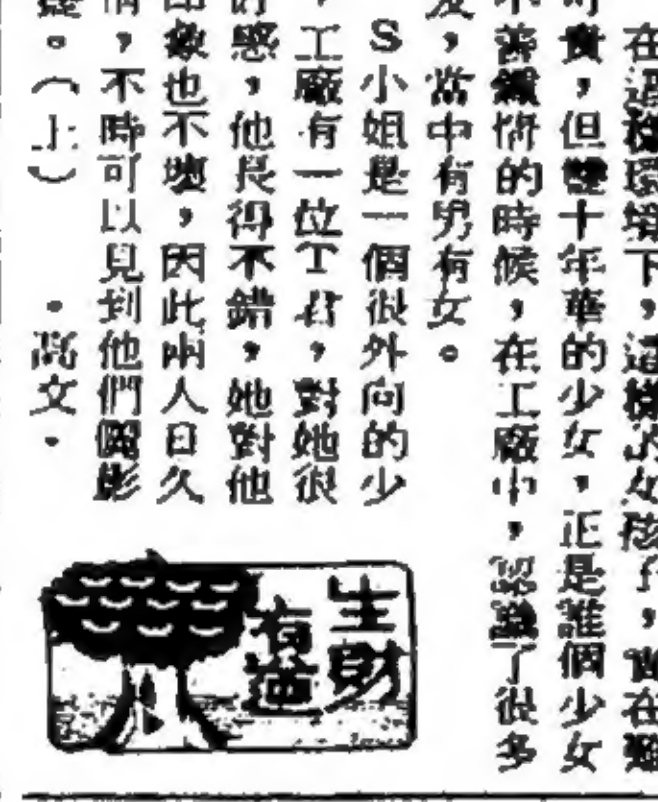 在這種環境下，這樣的女孩子，實在難
可貴，但雙十年華的少女，正是誰個少女
不善鍾情的時候，在工廠中，認識了很多
友，當中有男有女。
S小姐是一個很外向的少
，工廠有一位T君，對她很
好感，他長得不錯，她對他
印象也不壞，因此兩人日久
情，不時可以見到他們儷影
。（上）　　·高文·
生財
有道